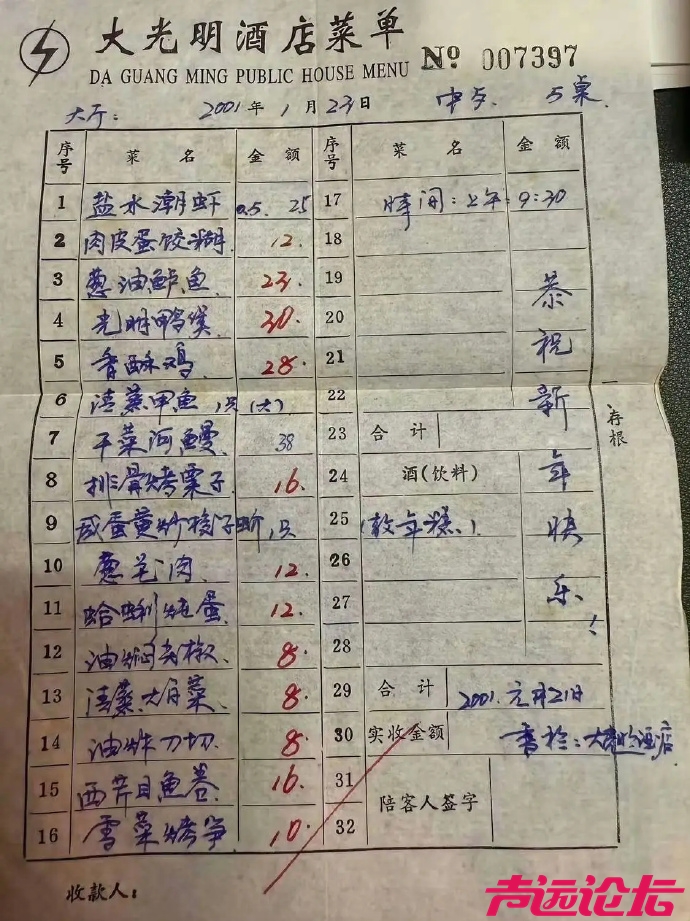 大光明酒店菜单
DA GUANG MING PUBLIC HOUSE MENU
Nº 007397
大厅: 2001年1月23日 中午. 5桌.
序号 菜名 金额 序号 菜名 金额
1 盐水潮虾 0.5. 25 17 时间:上午:9:30
2 肉皮蛋饺糊. 12. 18
3 葱油鲈鱼 23. 19
4 光明鸭煲 30. 20
5 香酥鸡 28. 21
6 清蒸甲鱼 1只(大) 22
7 干菜河鳗 38 23 合计
8 排骨烤栗子 16. 24 酒(饮料)
9 咸蛋黄炒梭子蟹 1只 25 (敬年糕.)
10 葱毛肉. 12. 26
11 蛤蜊炖蛋 12. 27
12 油焖尖椒. 8. 28
13 清蒸大目菜 8. 29 合计 2001.元月21日
14 油炸刀切. 8. 30 实收金额
15 西芹目鱼卷 16. 31 陪客人签字
16 雪菜烤笋 10. 32
恭祝新年快乐!
存根
收款人:
声远论坛